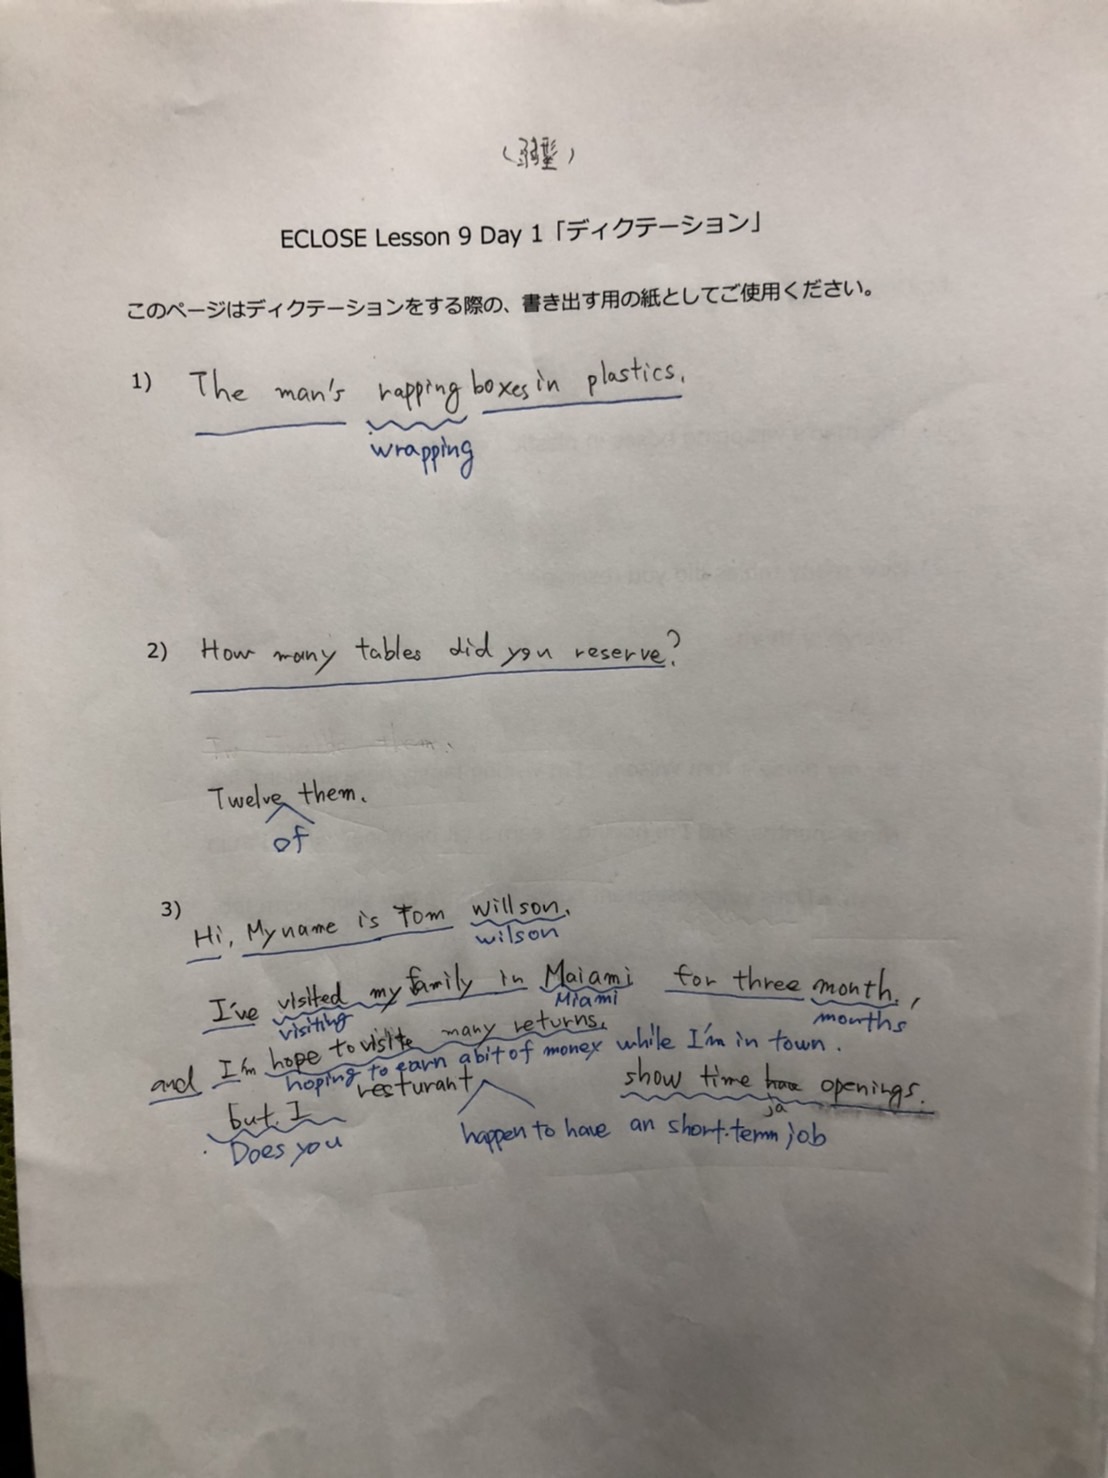 (弱型)
ECLOSE Lesson 9 Day 1「ディクテーション」
このページはディクテーションをする際の、書き出す用の紙としてご使用ください。
1) The man's rapping boxes in plastics.
wrapping
2) How many tables did you reserve?
Twelve them.
of
3)
Hi, My name is Tom willson.
wilson
I've visited my family in Maiami for three month.,
visiting Miami months
and I'm hope to visite many returns.
hoping to earn a bit of money while I'm in town.
but. I resturant show time have openings.
ja
Does you happen to have an short-term job